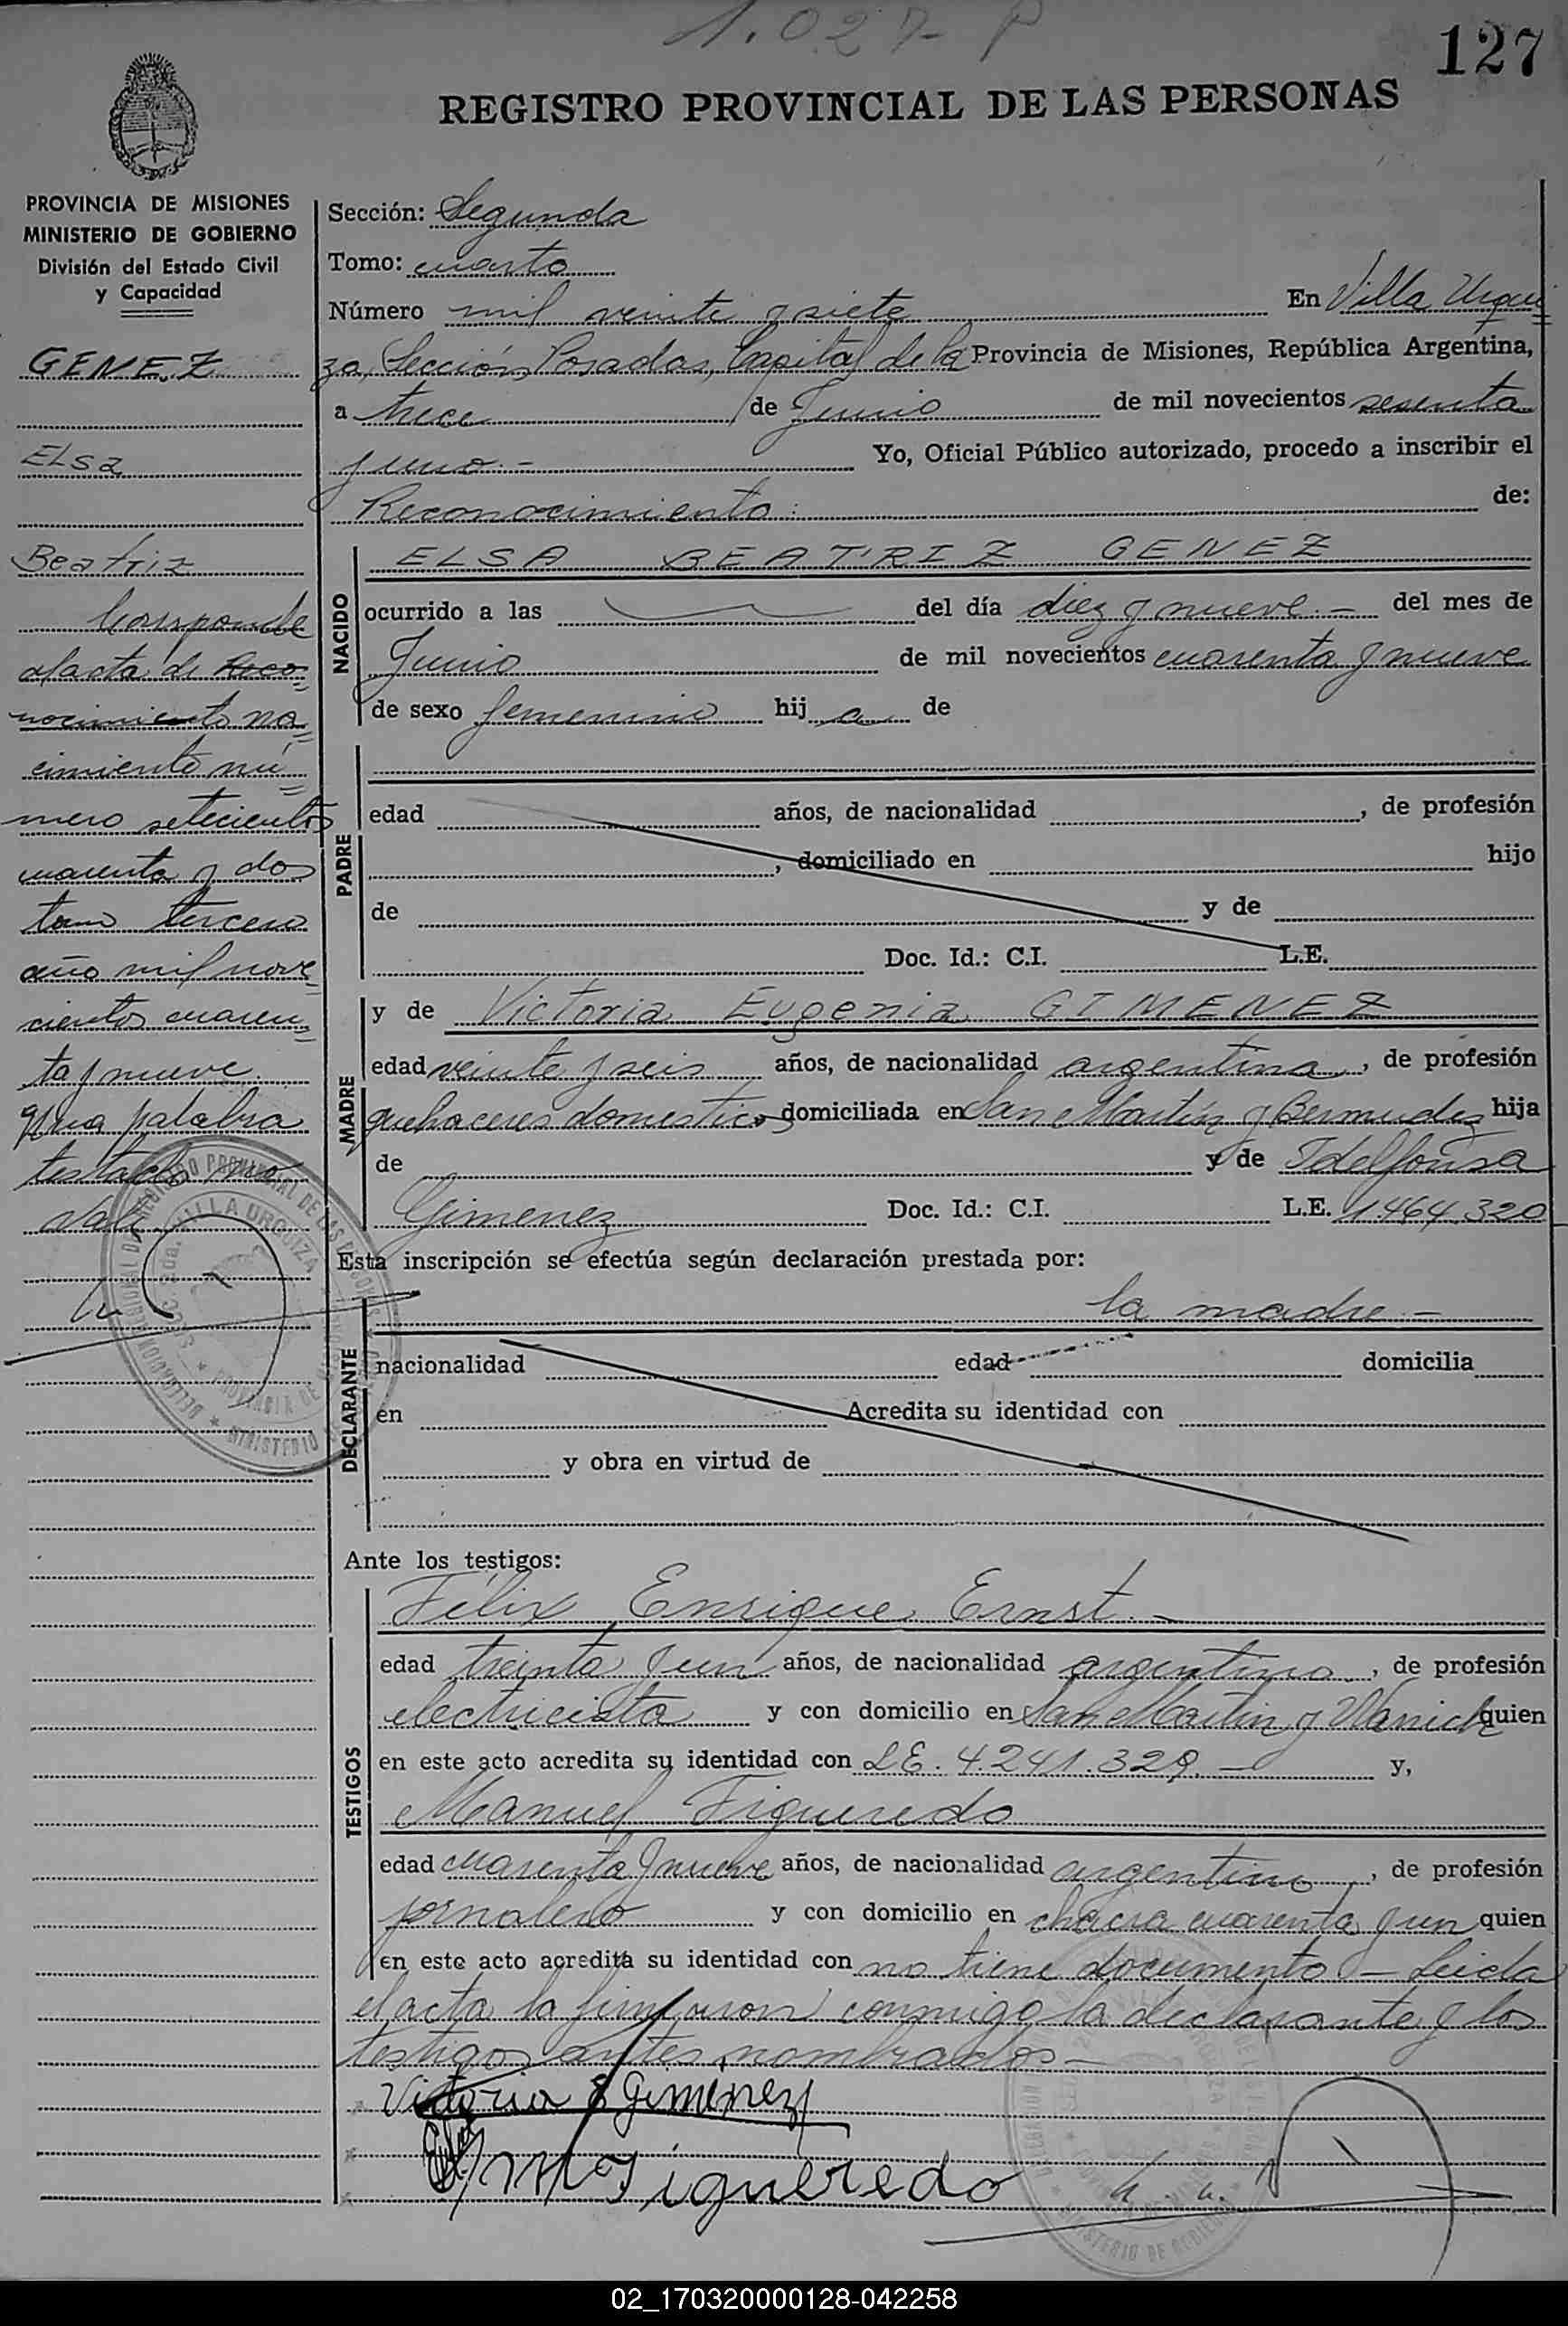 1.027- P
127
REGISTRO PROVINCIAL DE LAS PERSONAS
PROVINCIA DE MISIONES
MINISTERIO DE GOBIERNO
División del Estado Civil
y Capacidad
GENEZ
ELsa
Beatriz
Corresponde
al acta de Reco=
nocimiento na=
cimiento nú=
mero setecientos
cuarenta y dos
tomo tercero
año mil nove=
cientos cuaren=
ta y nueve.
palabra
testada no
vale
Sección: Segunda
Tomo: cuarto
Número mil veinte y siete En Villa Urqui=
za, Sección Posadas, Capital de la Provincia de Misiones, República Argentina,
a trece de Junio de mil novecientos sesenta
y uno.- Yo, Oficial Público autorizado, procedo a inscribir el
Reconocimiento: de:
NACIDO
ELSA BEATRIZ GENEZ
ocurrido a las del día diez y nueve.- del mes de
Junio de mil novecientos cuarenta y nueve
de sexo femenino hij a de
PADRE
edad años, de nacionalidad , de profesión
, domiciliado en hijo
de y de
Doc. Id.: C.I. L.E.
MADRE
y de Victoria Eugenia GIMENEZ
edad veinte y seis años, de nacionalidad argentina, de profesión
quehaceres domestico domiciliada en San Martín y Bermudez hija
de y de Idelfonsa
Gimenez Doc. Id.: C.I. L.E. 1.464.320
Esta inscripción se efectúa según declaración prestada por:
la madre.-
DECLARANTE
nacionalidad edad domicilia
en Acredita su identidad con
y obra en virtud de
Ante los testigos:
TESTIGOS
Félix Enrique Ernst.-
edad treinta y un años, de nacionalidad argentino, de profesión
electricista y con domicilio en San Martin y quien
en este acto acredita su identidad con L.E. 4.241.329.- y,
Manuel Figueredo
edad cuarenta y nueve años, de nacionalidad argentino, de profesión
jornalero y con domicilio en chacra cuarenta y un quien
en este acto acredita su identidad con no tiene documento - Leida
el acta la firmaron conmigo la declarante y los
testigos antes nombrados-
Victoria E Gimenez
M Figueredo
02_170320000128-042258